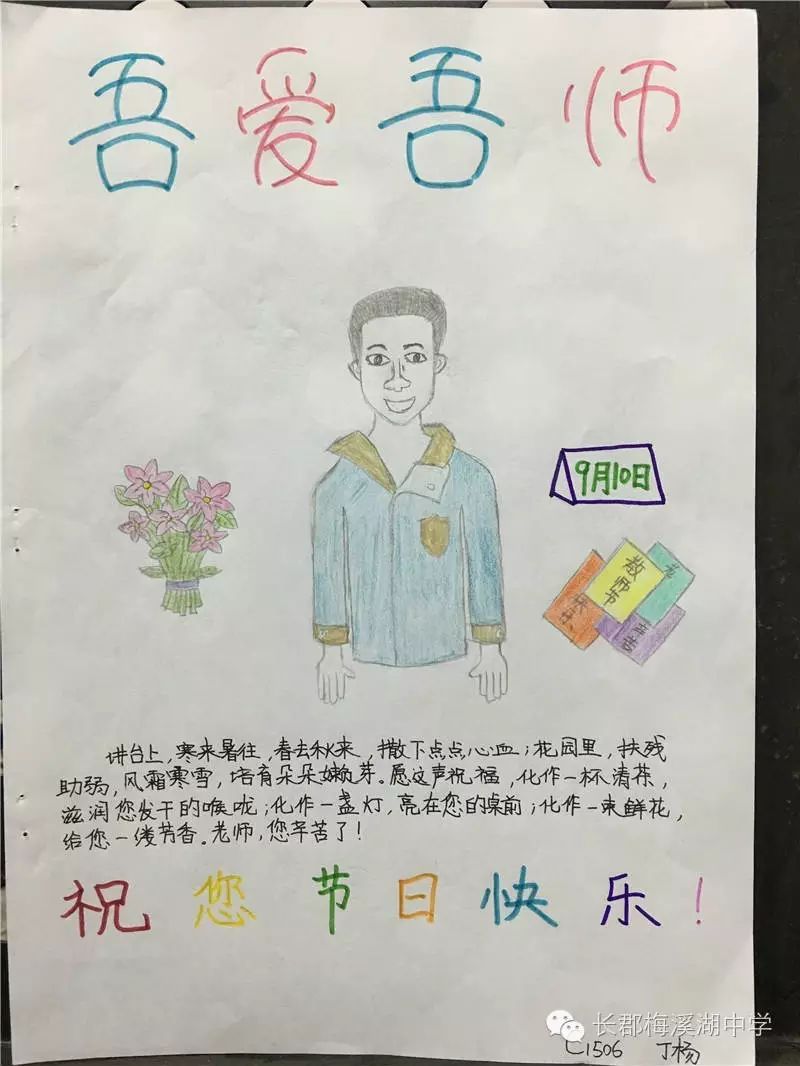 吾爱吾师
9月10日
教师节
讲台上，寒来暑往，春去秋来，撒下点点心血；花园里，扶残
助弱，风霜寒雪，培育朵朵嫩芽。愿这声祝福，化作一杯清茶，
滋润您发干的喉咙；化作一盏灯，亮在您的桌前；化作一束鲜花，
给您一缕芳香。老师，您辛苦了！
祝您节日快乐！
长郡梅溪湖中学
C1506 丁杨